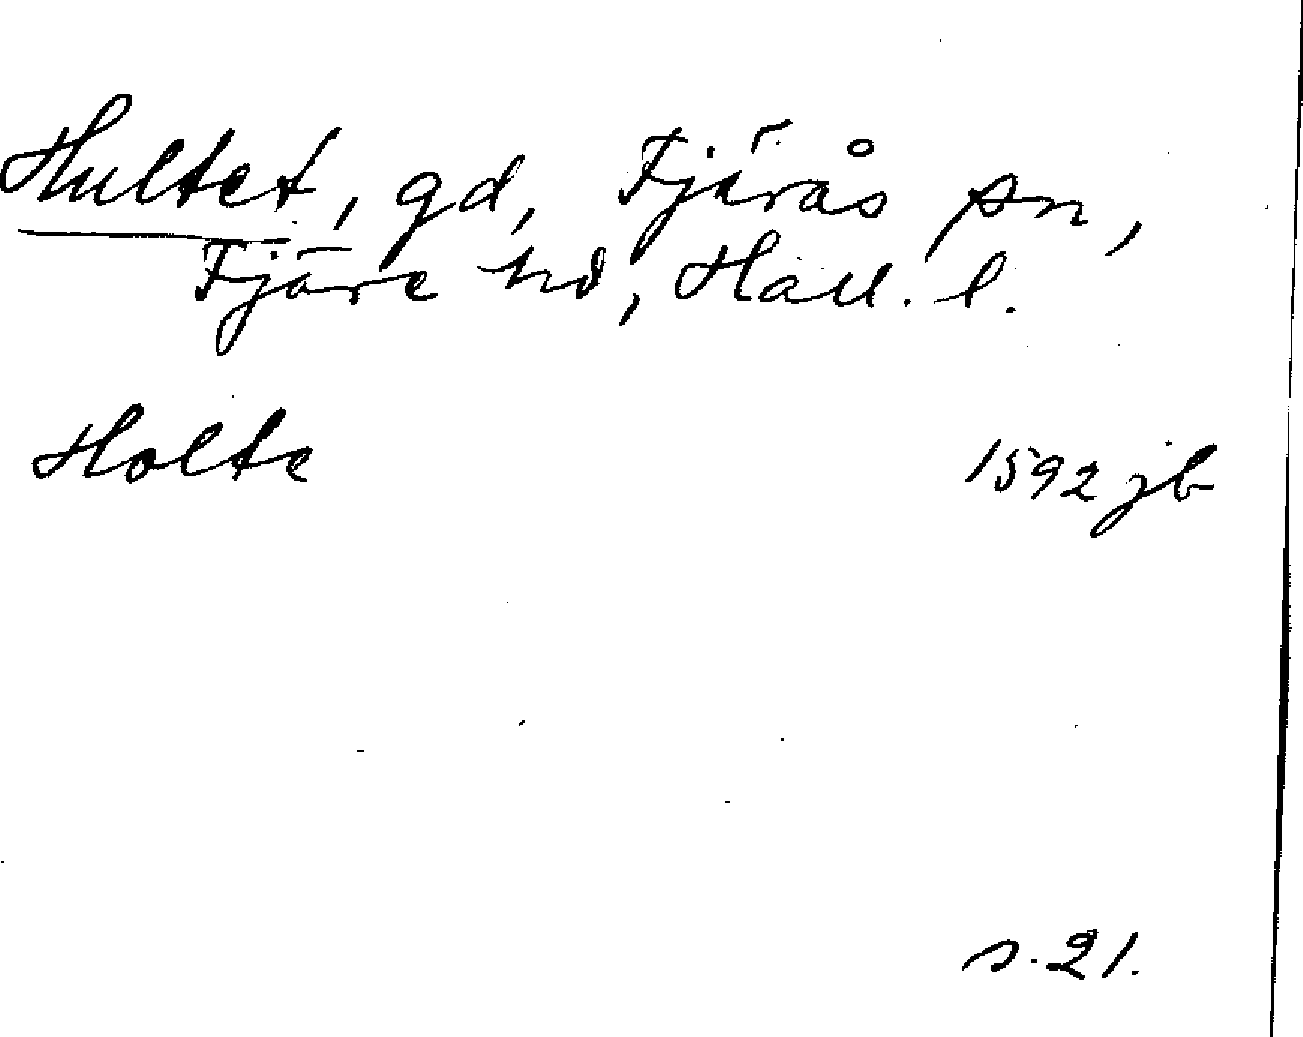 Hultet, gd, Fjärås sn,
Fjäre hd, Hall. l.
Holte 1592 jb
s. 21.